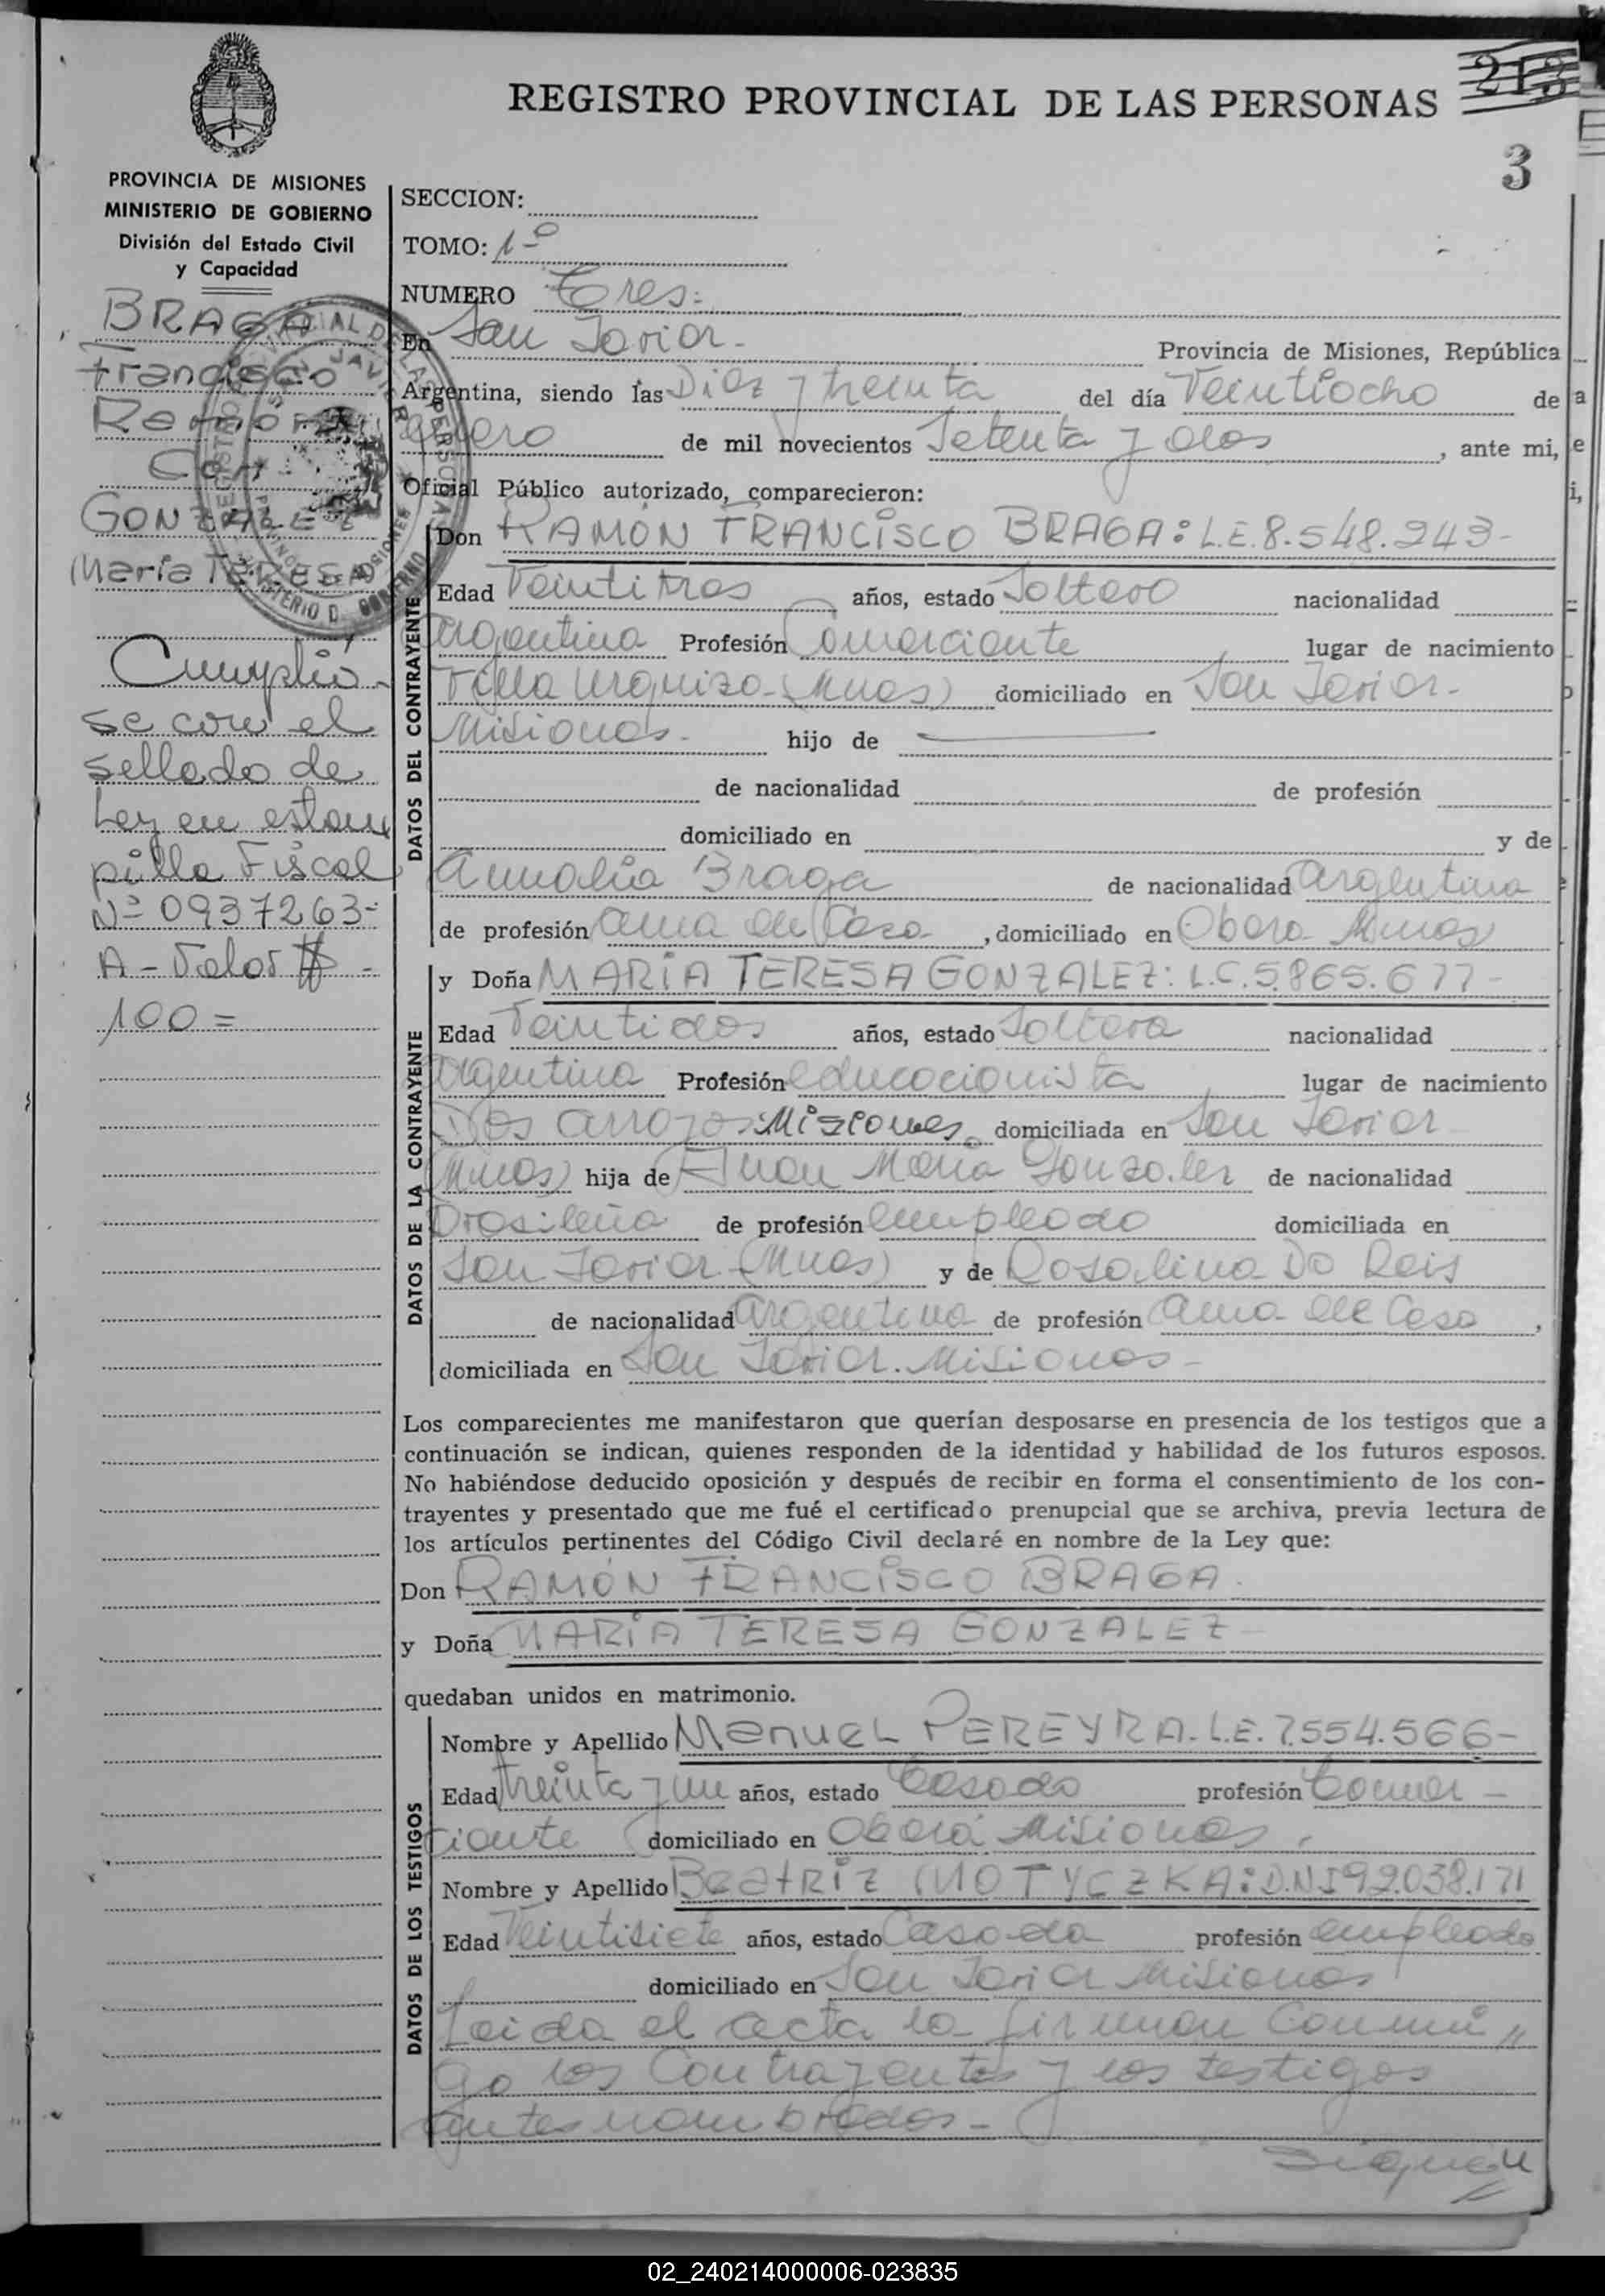 213
REGISTRO PROVINCIAL DE LAS PERSONAS
3
PROVINCIA DE MISIONES
MINISTERIO DE GOBIERNO
División del Estado Civil
y Capacidad
BRAGA
Francisco
Ramón
Con
GONZALEZ
María TERESA
Cumplió
se con el
sellado de
Ley en estam
pilla Fiscal
Nº 0937263-
A - Valor $ -
100 =
SECCION:
TOMO: 1º
NUMERO Tres:
En San Javier - Provincia de Misiones, República
Argentina, siendo las Diez y treinta del día Veintiocho de
enero de mil novecientos Setenta y dos, ante mi,
Oficial Público autorizado, comparecieron:
DATOS DEL CONTRAYENTE
Don RAMÓN FRANCISCO BRAGA: L.E. 8.548.243-
Edad Veintitres años, estado Soltero nacionalidad
argentina Profesión Comerciante lugar de nacimiento
Villa Urquiza - (Mnes) domiciliado en San Javier -
Misiones - hijo de
de nacionalidad de profesión
domiciliado en y de
Amalia Braga de nacionalidad argentina
de profesión ama de Casa, domiciliado en Obera Mnes
DATOS DE LA CONTRAYENTE
y Doña MARÍA TERESA GONZALEZ: L.C. 5.865.677-
Edad Veintidos años, estado Soltera nacionalidad
argentina Profesión educacionista lugar de nacimiento
Dos arroyos: Misiones domiciliada en San Javier
(Mnes) hija de Juan María Gonzalez de nacionalidad
Brasileña de profesión empleado domiciliada en
San Javier (Mnes) y de Rosalina Do Reis
de nacionalidad argentina de profesión ama de Casa,
domiciliada en San Javier. Misiones -
Los comparecientes me manifestaron que querían desposarse en presencia de los testigos que a
continuación se indican, quienes responden de la identidad y habilidad de los futuros esposos.
No habiéndose deducido oposición y después de recibir en forma el consentimiento de los con-
trayentes y presentado que me fué el certificado prenupcial que se archiva, previa lectura de
los artículos pertinentes del Código Civil declaré en nombre de la Ley que:
Don RAMÓN FRANCISCO BRAGA.
y Doña MARÍA TERESA GONZALEZ -
quedaban unidos en matrimonio.
DATOS DE LOS TESTIGOS
Nombre y Apellido Manuel PEREYRA - L.E. 7.554.566-
Edad treinta y un años, estado Casado profesión Comer -
ciante domiciliado en Oberá Misiones.
Nombre y Apellido Beatriz MOTYCZKA: D.N.I 92.038.171
Edad Veintisiete años, estado Casada profesión empleada
domiciliado en San Javier Misiones
Leida el acta la firman Conmi "
go los Contrayentes y los testigos
antes nombrados -
Siguen
02_240214000006-023835